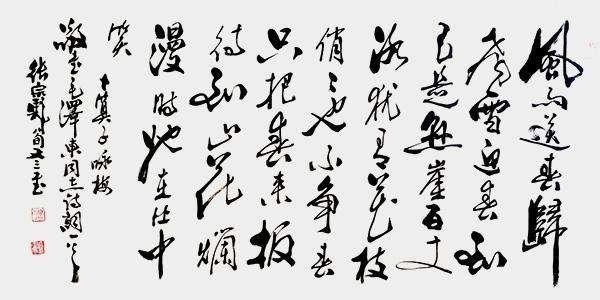 風雨送春歸
飛雪迎春到
已是懸崖百丈
冰猶有花枝
俏俏也不爭春
只把春來報
待到山花爛
漫時她在叢中
笑
卜算子咏梅
敬書毛澤東同志詩詞一首
張